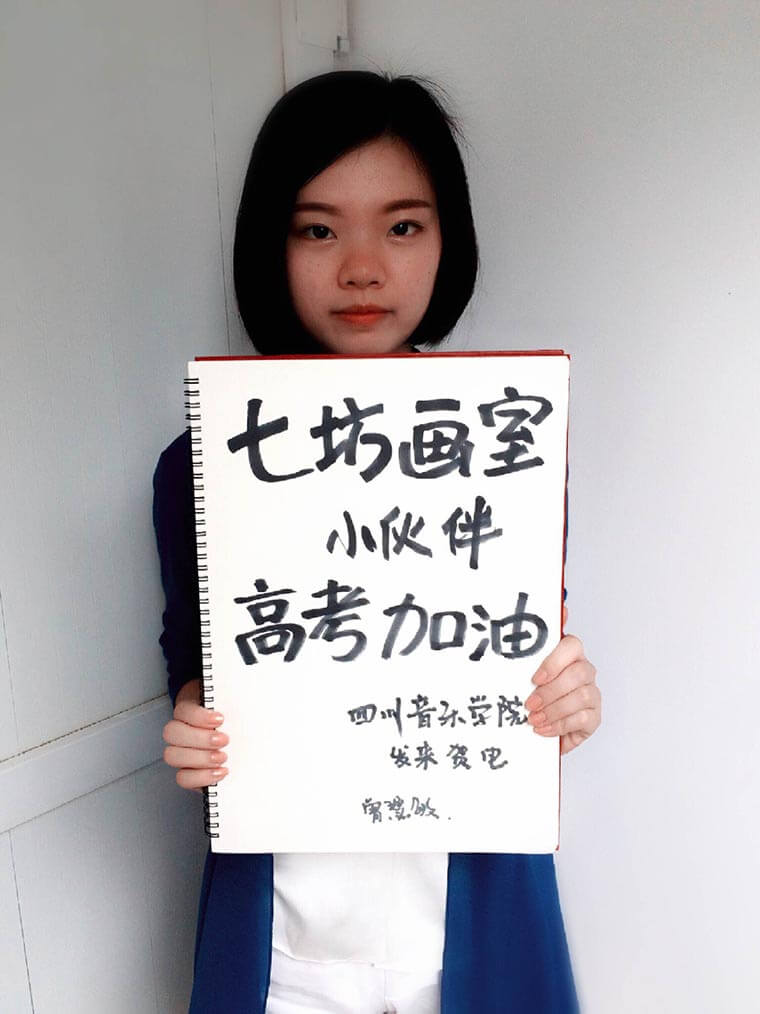 七坊画室
小伙伴
高考加油
四川音乐学院
发来贺电
曾慧敏.